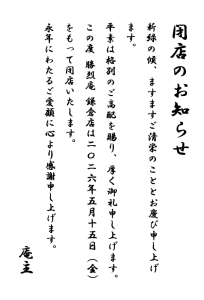 閉店のお知らせ
新緑の候、ますますご清栄のこととお慶び申し上げ
平素は格別のご高配を賜り、厚く御礼申し上げます。
この度 勝烈庵 鎌倉店は二〇二六年五月十五日（金）
をもって閉店いたします。
永年にわたるご愛顧に心より感謝申し上げます。
庵主